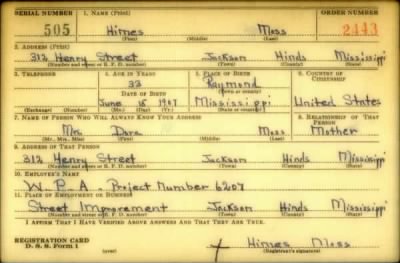 SERIAL NUMBER 1. NAME (Print) ORDER NUMBER
505 Himes Moss 2443
(First) (Middle) (Last)
2. ADDRESS (Print)
312 Henry Street Jackson Hinds Mississippi
(Number and street or R. F. D. number) (Town) (County) (State)
3. TELEPHONE 4. AGE IN YEARS 5. PLACE OF BIRTH 6. COUNTRY OF CITIZENSHIP
33 Raymond
DATE OF BIRTH (Town or county)
June 15 1907 Mississippi United States
(Exchange) (Number) (Mo.) (Day) (Yr.) (State or country)
7. NAME OF PERSON WHO WILL ALWAYS KNOW YOUR ADDRESS 8. RELATIONSHIP OF THAT PERSON
Mrs Moss Mother
(Mr., Mrs., Miss) (First) (Middle) (Last)
9. ADDRESS OF THAT PERSON
312 Henry Street Jackson Hinds Mississippi
(Number and street or R. F. D. number) (Town) (County) (State)
10. EMPLOYER'S NAME
W.P.A - Project Number 6207
11. PLACE OF EMPLOYMENT OR BUSINESS
Street Improvement Jackson Hinds Mississippi
(Number and street or R. F. D. number) (Town) (County) (State)
I AFFIRM THAT I HAVE VERIFIED ABOVE ANSWERS AND THAT THEY ARE TRUE.
REGISTRATION CARD
D. S. S. Form 1 (over) x Himes Moss
(Registrant's signature)